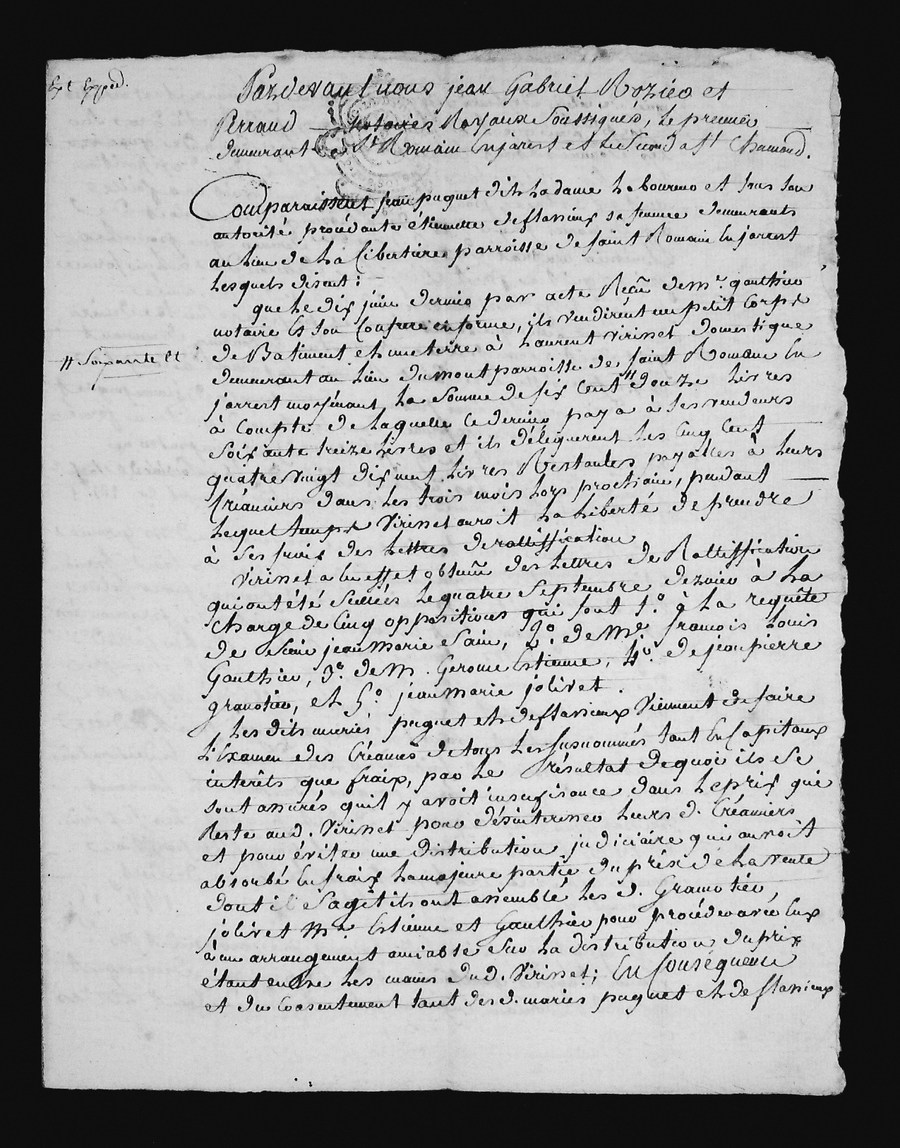 Exp. Exped.
Pardevant nous jean Gabriel Rozier et
Perraud notaires Royaux Soussignés, le premier
demeurant a St. Romain En jarest et le Second a St. Chamond.
Comparaissent jean puguet dit Ladame Laboureur et sous son
autorité procédante etiennette deflassieux sa femme demeurants
au lieu de La Libertiere parroisse de saint Romain En jarrest
Lesquels disent :
que Le dix juin dernier par acte Reçu de me. gauthier
notaire Et son Confrere en forme, ils vendirent un petit Corps
de Batiment et une terre à Laurent virisset domestique
demeurant au lieu du mont parroisse de saint Romain En
# Soixante et
jarrest moyénant La Somme de six Cent # douze Livres
à Compte de Laquelle Ce dernier paya à ses vendeurs
Soixante treize Livres et ils déleguerent Les Cinq Cent
quatre vingt dix neuf Livres Restantes payables à Leurs
Créanciers dans Les trois mois Lors prochains, pendant
Lequel temps Virisset auroit La Liberté de prendre
à ses frais des Lettres de rattiffication
Virisset a En effet obtenu des Lettres de Rattiffication
qui ont été Scellées Le quatre Septembre dernier à La
Charge de Cinq oppositions qui sont 1o. à La requête
de Sieur jean Marie Sain, 2o. de Me françois Louis
Gauthier, 3o. de M. Gerome Estienne, 4o. de jean pierre
granotier, et 5o. jean Marie jolivet.
Les dits mariés puguet et deflassieux Viennent de faire
L'Examen des Créances de tous Les susnommés tant En Capitaux
interêts que fraix, par Le résultat de quoi ils se
sont assurés qu'il y avoit insufisance dans Le prix qui
Reste au d. Virisset pour désinteresser Leurs d. Créanciers
et pour éviter une distribution judiciaire qui auroit
absorbé En fraix La majeure partie du prix de La vente
dont il S'agit ils ont assemblé Les d. Granotier,
jolivet Me. Estienne et Gauthier pour procéder avec Eux
à un arrangement amiable sur La distribution du prix
étant entre Les mains du d. Virisset; En Conséquence
et du Consentement tant des d. mariés puguet et deflassieux